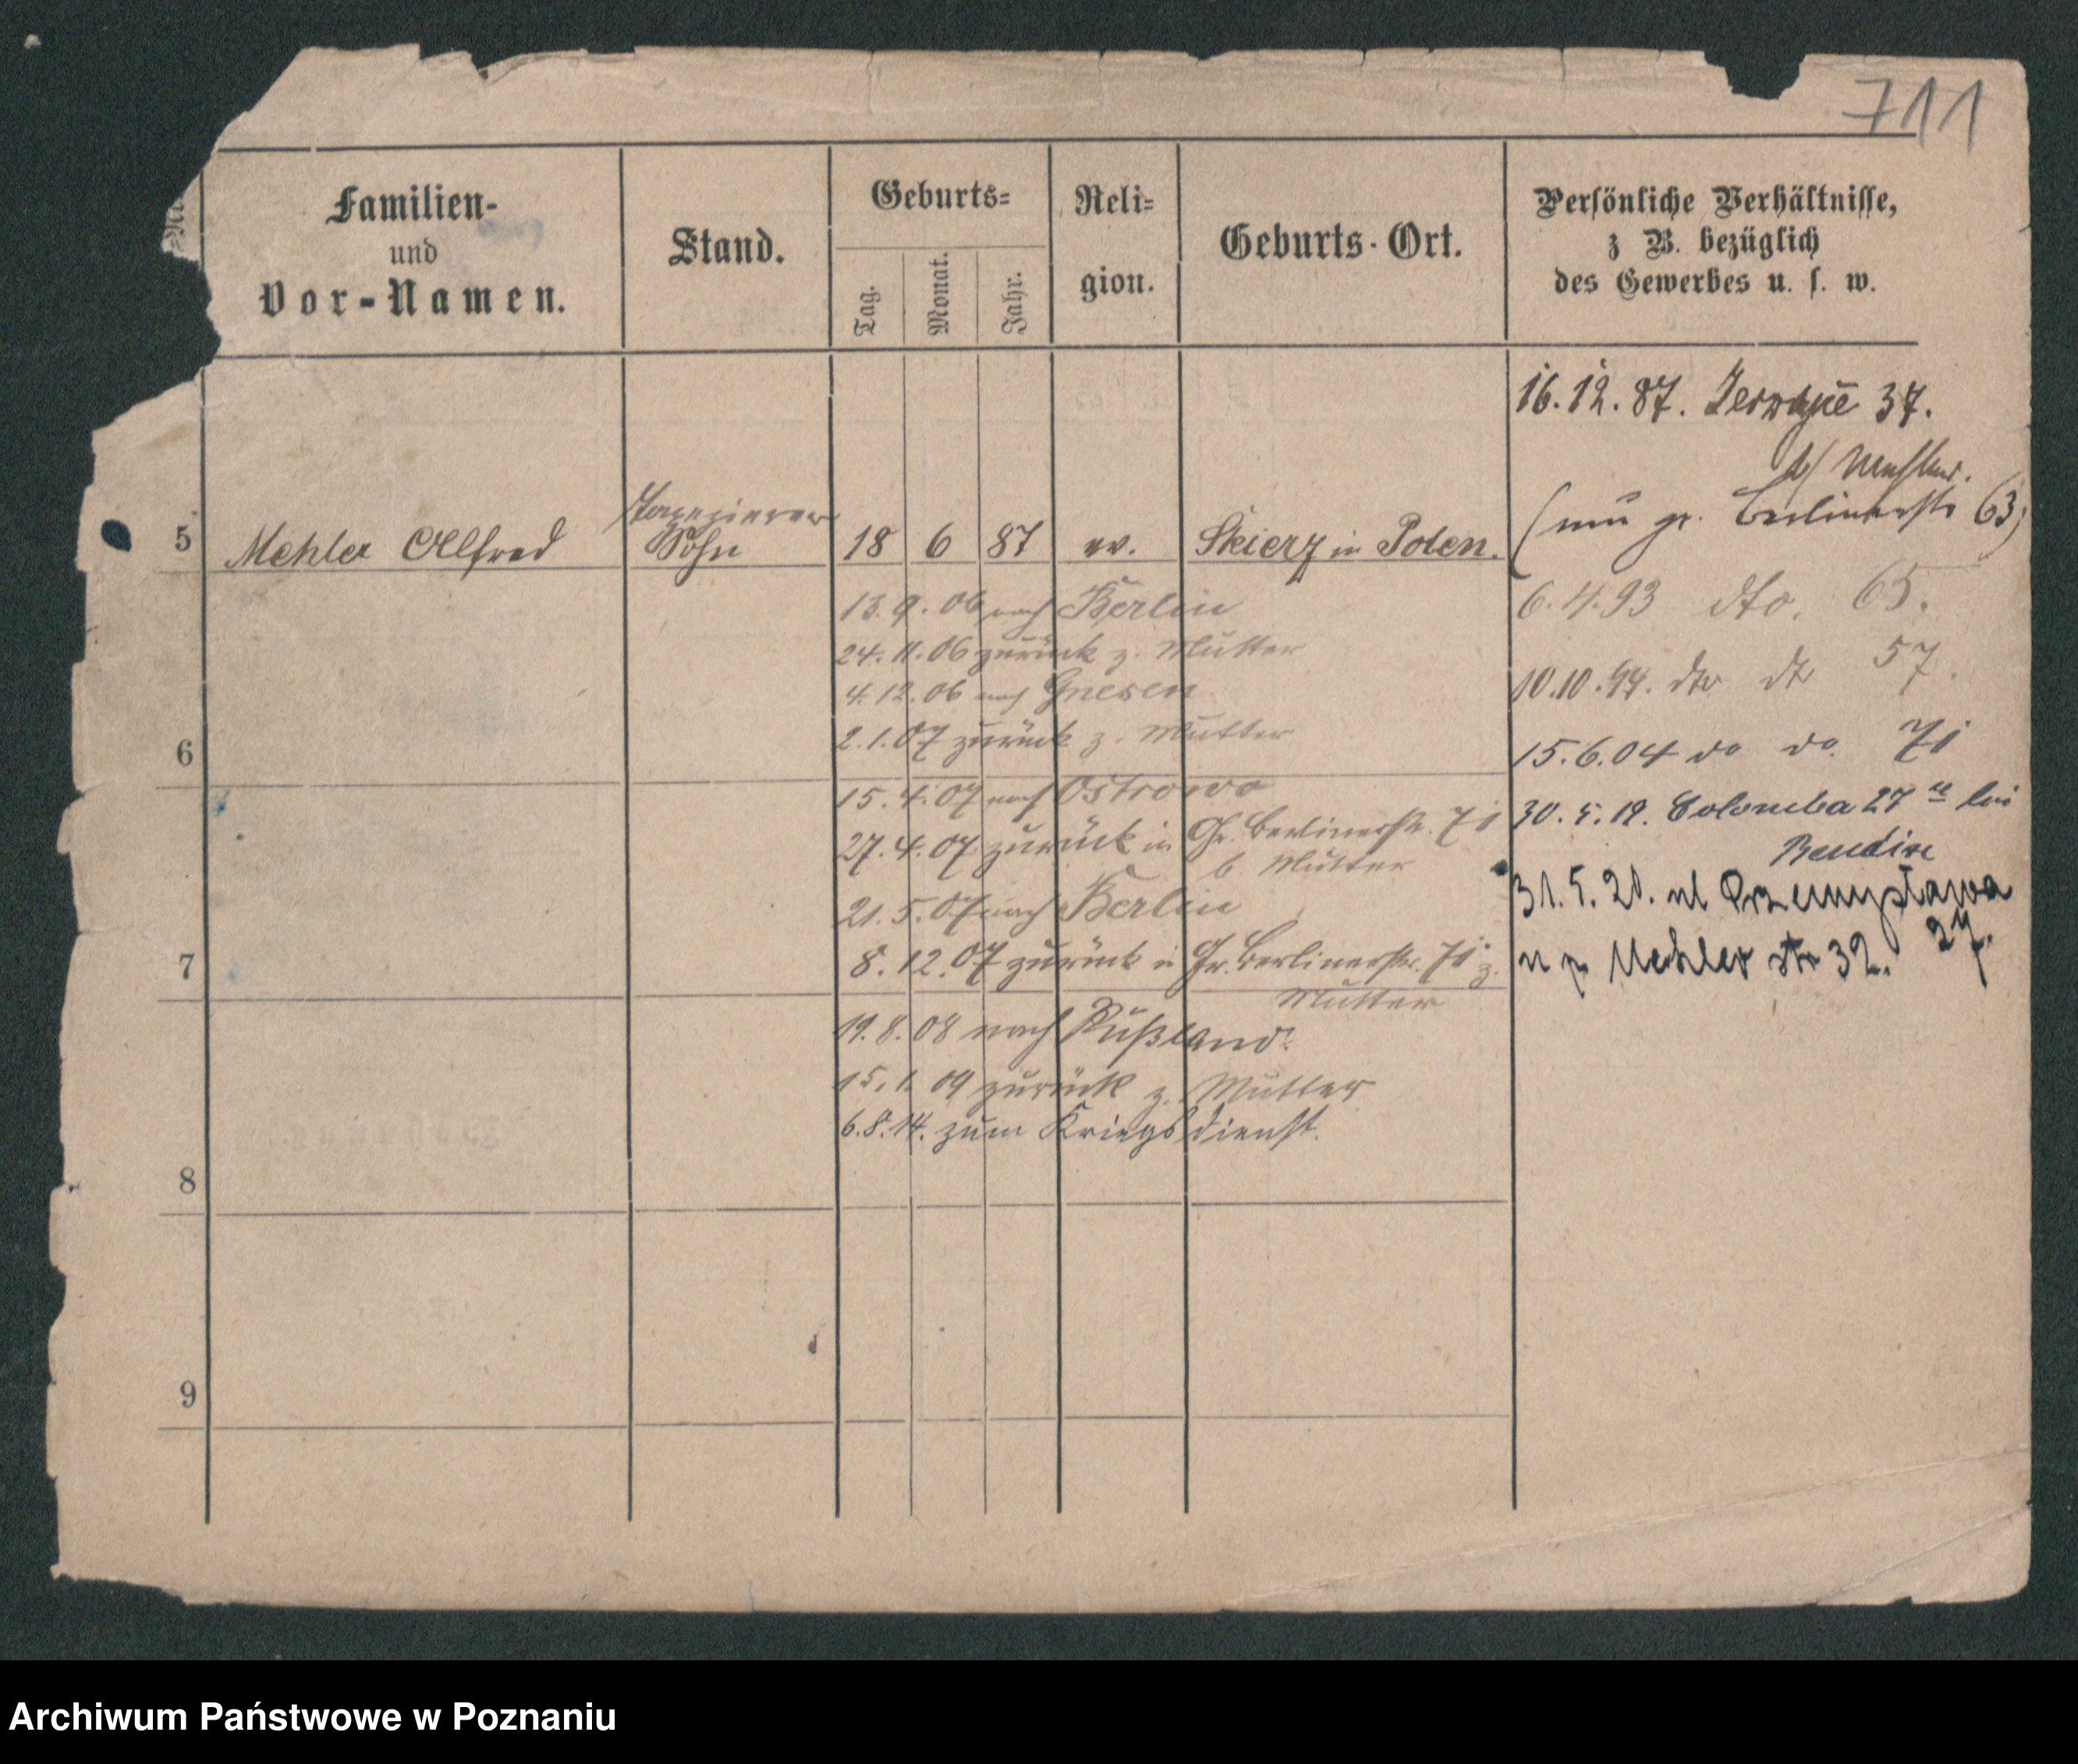 711
Familien-
und
Vor-Namen.
Stand.
Geburts-
Tag.
Monat.
Jahr.
Reli-
gion.
Geburts-Ort.
Persönliche Verhältnisse,
z B. bezüglich
des Gewerbes u. s. w.
16.12.87. 37.
(nun gr. Berlinerstr 63)
5 Mehler Alfred Sohn 18 6 87 ev. Skierz in Polen.
13.9.06 nach Berlin
6.4.93 dto. 65.
24.11.06 zurück z. Mutter
4.12.06 nach Gnesen
10.10.94. dto dto 57.
2.1.07 zurück z. Mutter
15.6.04 do do. 71
6
15.4.07 nach Ostrowo
30.5.19. Colomba 27 bei
27.4.07 zurück in Gr. Berlinerstr. 71
b Mutter
21.5.07 nach Berlin
31.5.20. ul Przemysława
27.
7
8.12.07 zurück in Gr. Berlinerstr. 71 z.
Mutter
Mehler str 32.
19.8.08 nach Rußland.
15.1.09 zurück z. Mutter
6.8.14. zum Kriegsdienst.
8
9
Archiwum Państwowe w Poznaniu